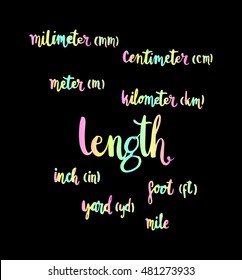 milimeter (mm)
centimeter (cm)
meter (m)
kilometer (km)
length
inch (in)
foot (ft)
yard (yd)
mile
shutterstock.com · 481273933